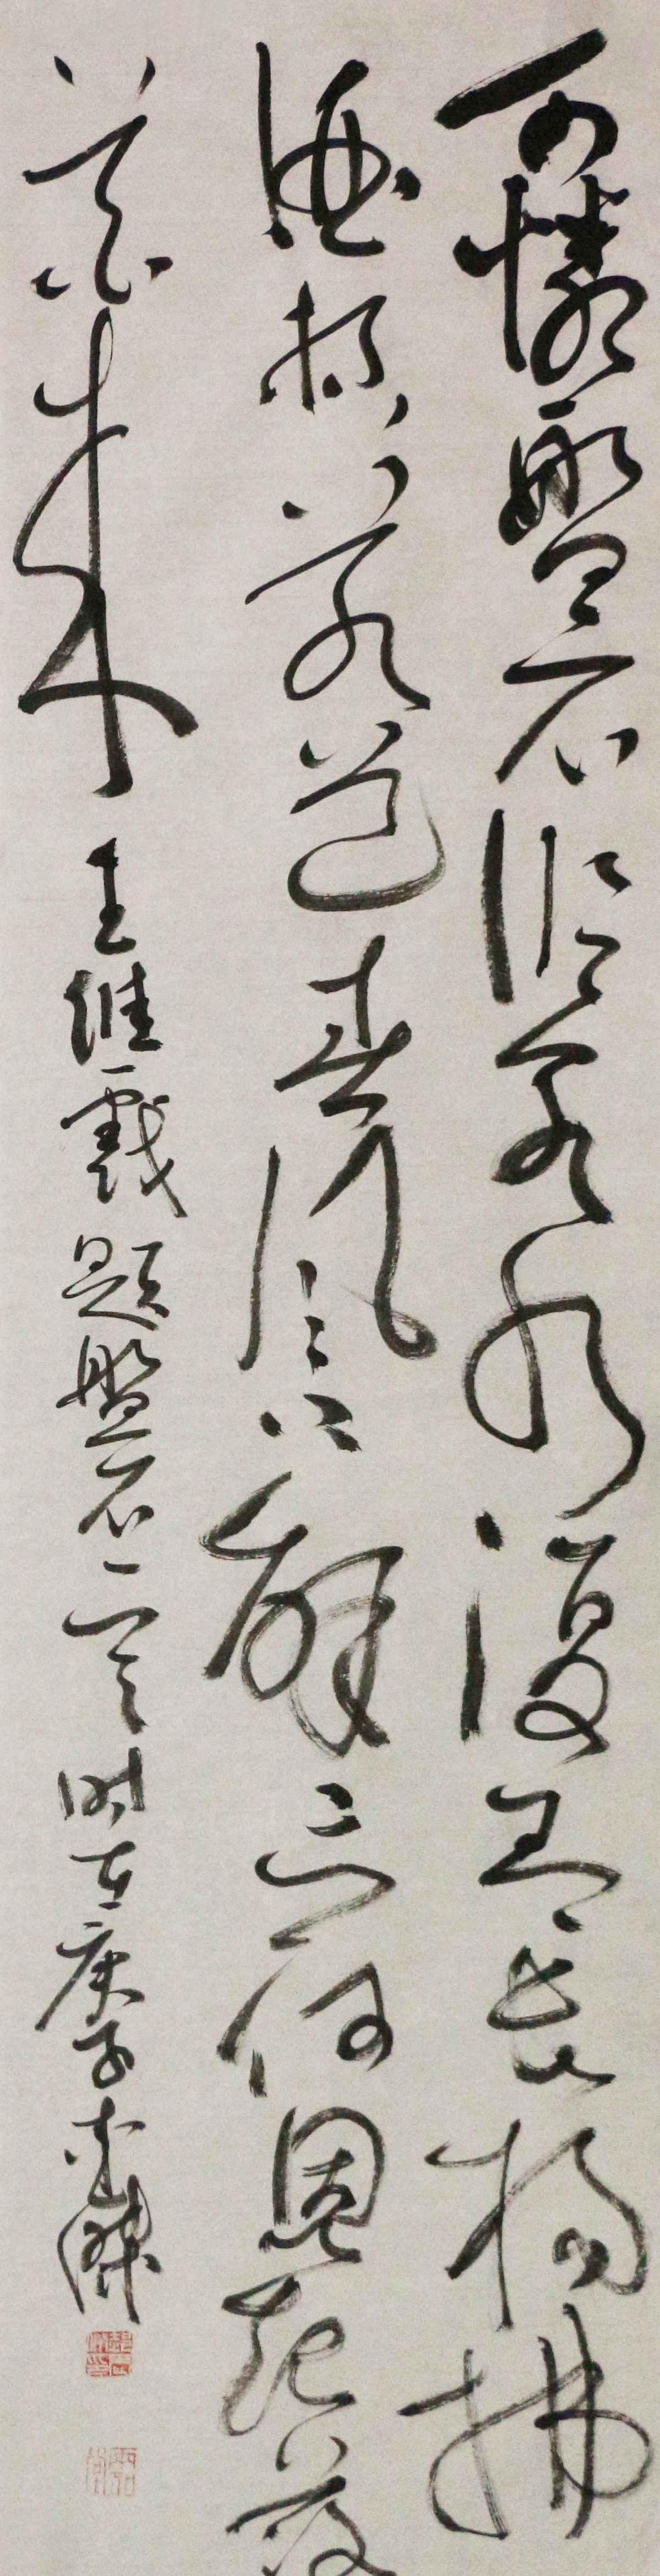 可憐盤石臨泉水復有垂楊拂
酒杯若道春風不解意何因吹送落
花來
王維戲題盤石時在庚子